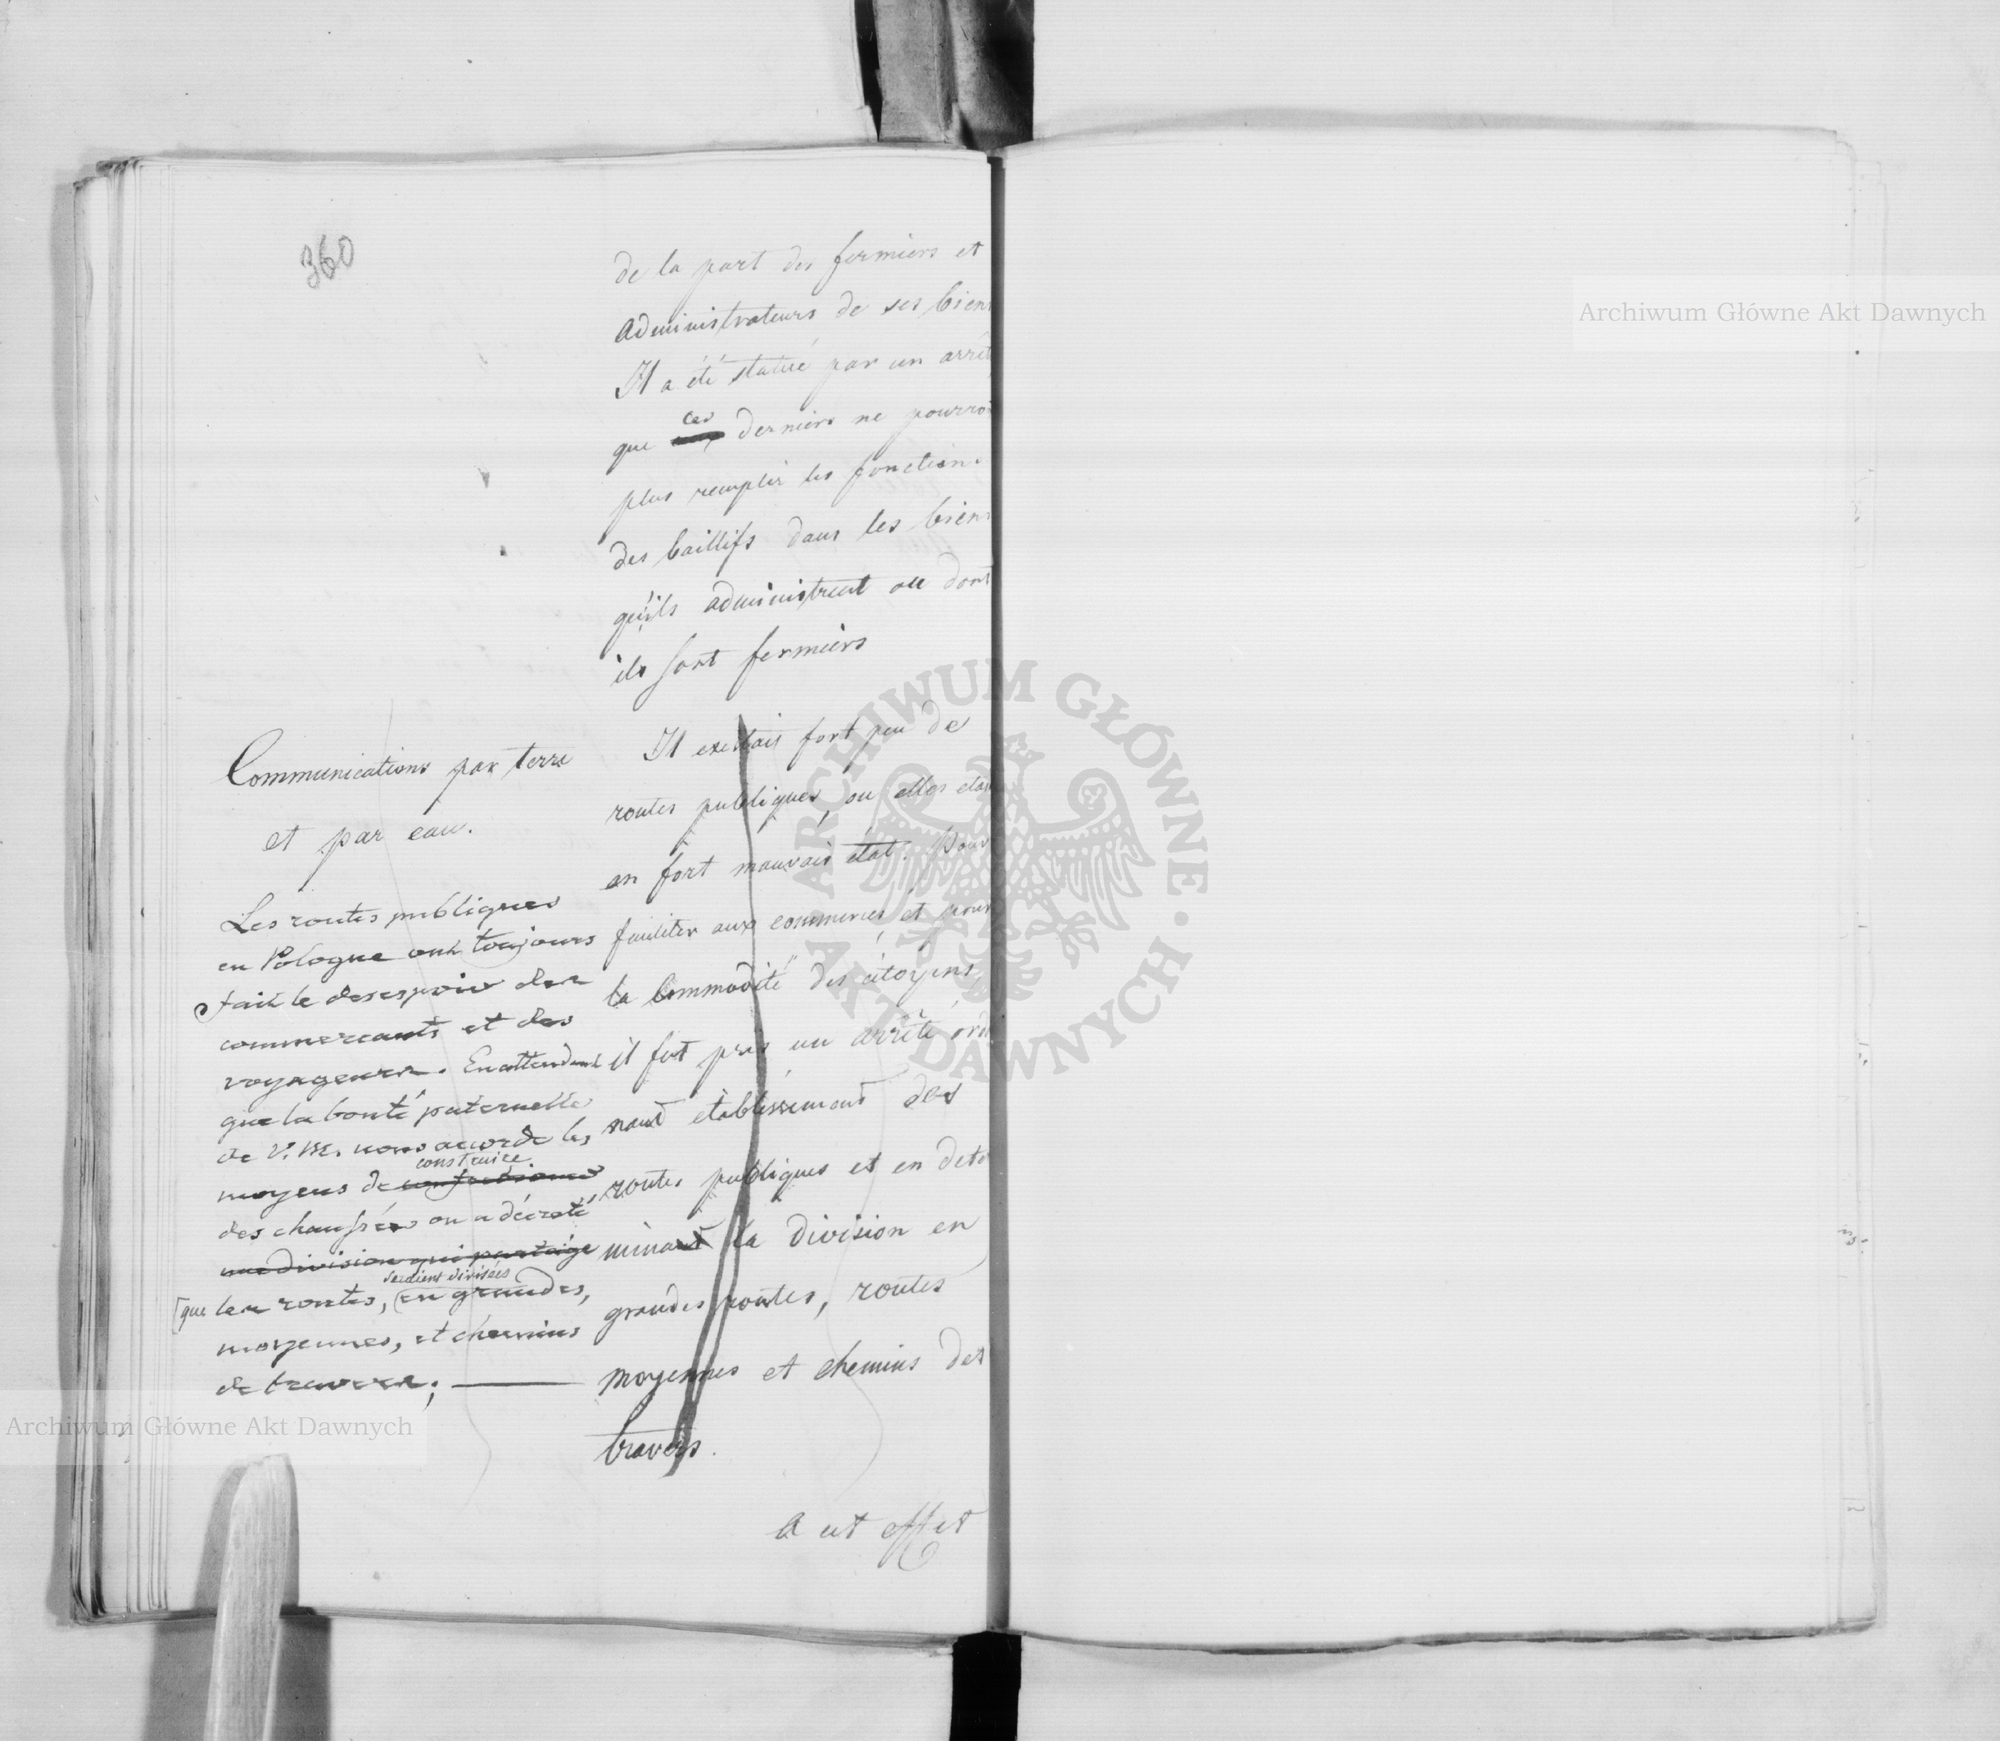 360
de la part des fermiers et
administrateurs de ses biens
Il a été statué par un arrêt
que ces derniers ne pourroi
plus remplir les fonctions
des baillifs dans les biens
qu'ils administrent ou dont
ils sont fermiers
Communications par terre
et par eau.
Les routes publiques
en Pologne ont toujours
fait le desespoir des
commercants et des
voyageurs. En attendant
que la bonté paternelle
de V. M. nous accorde les
construire
moyens de
des chaussées on a décreté
une division qui partage
seraient divisées
que les routes, en grandes,
moyennes, et chemins
de travers;
Il existait fort peu de
routes publiques, ou elles etai
en fort mauvais état. Pour
faciliter aux commerces, et pour
la Commodité des citoyens,
il fut pris un arrêté ordo
nant etablissement des
routes publiques et en deter
minant la division en
grandes routes, routes
moyennes et chemins des
travers.
A cet effet
Archiwum Główne Akt Dawnych
Archiwum Główne Akt Dawnych
ARCHIWUM GŁÓWNE · AKT DAWNYCH ·